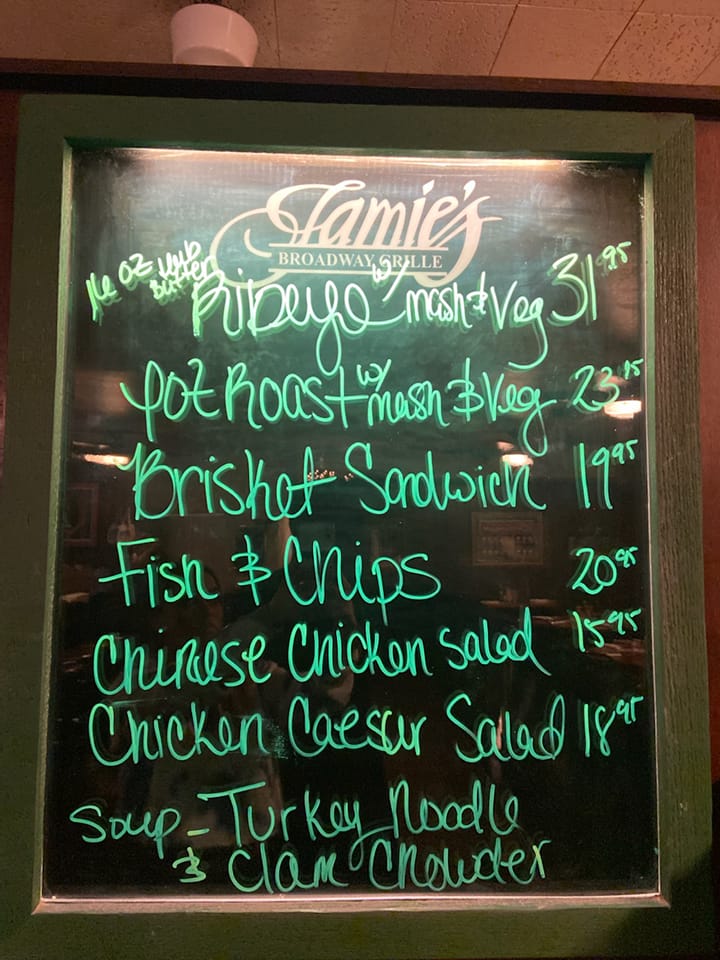 Jamie's
BROADWAY GRILLE
16 oz Herb Butter
Ribeye w/ mash & Veg 31.95
Pot Roast w/ mash & Veg 23.95
Brisket Sandwich 19.95
Fish & Chips 20.95
Chinese Chicken Salad 15.95
Chicken Caesar Salad 18.95
Soup - Turkey Noodle
& Clam Chowder